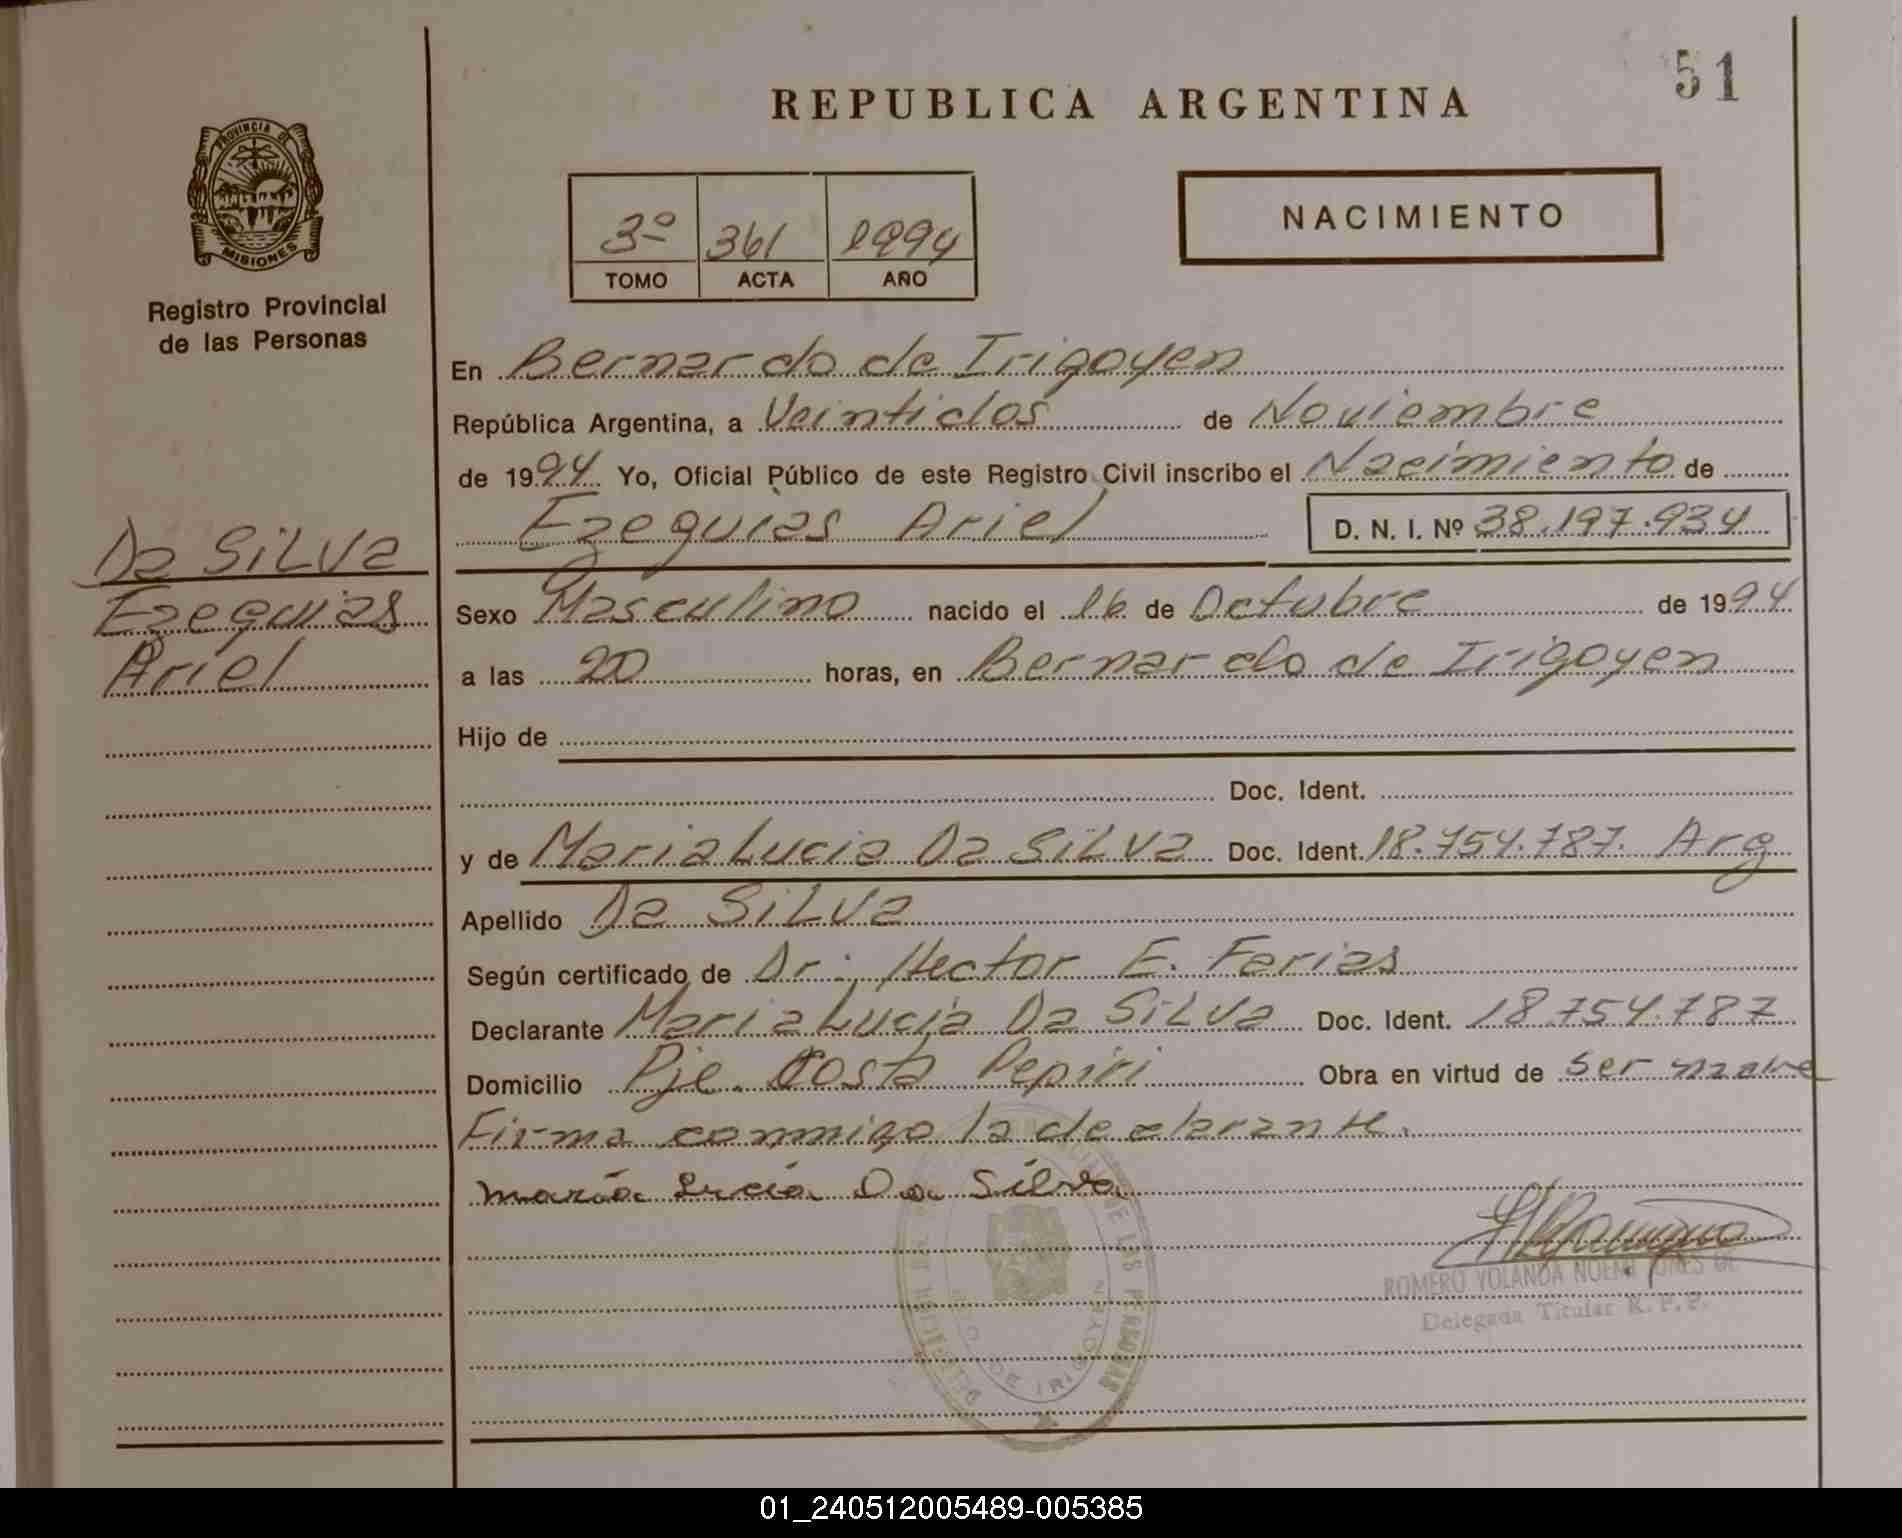 51
REPUBLICA ARGENTINA
PROVINCIA DE
MISIONES
Registro Provincial
de las Personas
3º 361 1994
TOMO ACTA AÑO
NACIMIENTO
En Bernardo de Irigoyen
República Argentina, a Veintidos de Noviembre
de 1994 Yo, Oficial Público de este Registro Civil inscribo el Nacimiento de
Ezequias Ariel D. N. I. Nº 38.197.934
Da SiLVa
Ezequias
Ariel
Sexo Masculino nacido el 16 de Octubre de 1994
a las 20 horas, en Bernardo de Irigoyen
Hijo de
Doc. Ident.
y de Maria Lucia Da SiLVa Doc. Ident. 18.754.787. Arg
Apellido Da SiLVa
Según certificado de Dr. Hector E. Farias
Declarante Maria Lucia Da SiLVa Doc. Ident. 18.754.787
Domicilio Pje. Costa Pepiri Obra en virtud de ser madre
Firma conmigo la declarante.
maría Lucía Da Silva
ROMERO YOLANDA NOEMI
Delegada Titular R. P. P.
DE LAS PERSONAS
DE IRIGOYEN
01_240512005489-005385